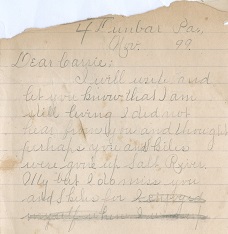 4 Dunbar Pa,
Nov. 99
Dear Carrie:
I will write and
let you know that I am
still living I did not
hear from you and thought
perhaps you and
were gone up Salt River.
My but I do miss you
and for
myself when I